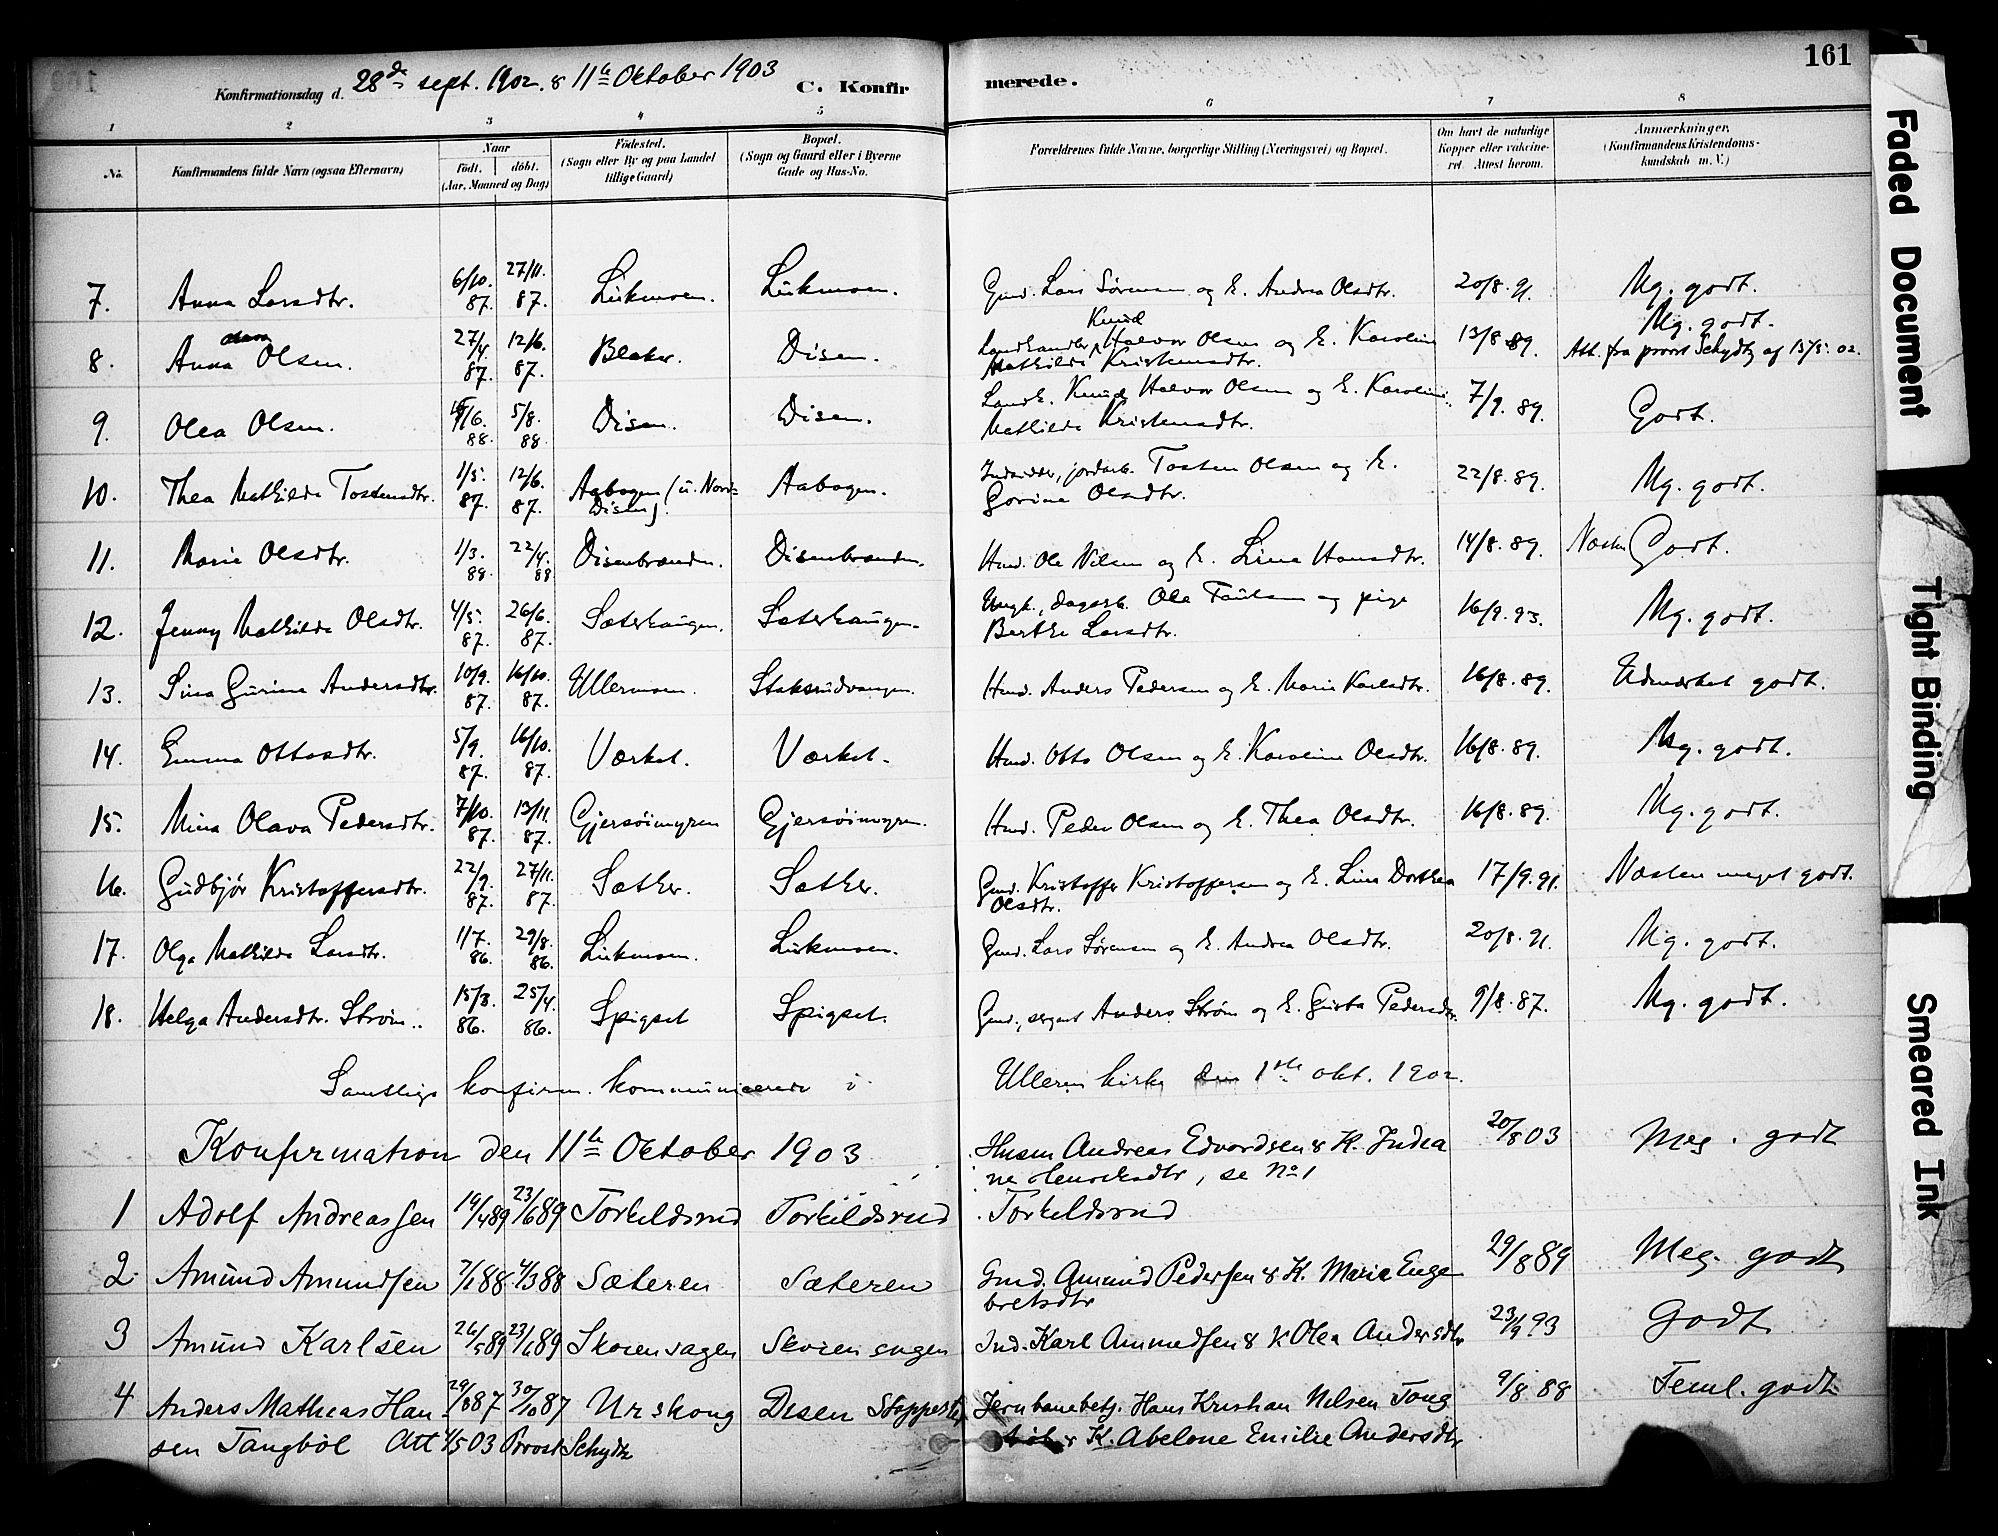 161
Konfirmationsdag d. 28de sept. 1902. & 11te Oktober 1903
C. Konfirmerede.
1 2 3 4 5 6 7 8
No. Konfirmandens fulde Navn (ogsaa Efternavn) Naar født. døbt. (Aar, Maaned og Dag) Fødested. (Sogn eller By og paa Landet tillige Gaard) Bopæl. (Sogn og Gaard eller i Byerne Gade og Hus-No. Forældrenes fulde Navne, borgerlige Stilling (Næringsvei) og Bopæl. Om havt de naturlige Kopper eller vakcineret. Attest herom. Anmærkninger. (Konfirmandens Kristendomskundskab m. V.)
7. Anna Larsdtr. 6/10. 87. 27/11. 87. Lükmoen. Lükmoen. Gmd. Lars Sørensen og E. Andrea Olsdtr. 20/8. 91. Mg. godt.
8. Anna Olsen. 27/4. 87. 12/6. 87. Blaker. Disen. Landhandler Knud Halvor Olsen og E. Karoline Mathilde Kristensdtr. 13/8 89. Mg. godt. Att. fra provst Schydtz af 13/5. 02.
9. Olea Olsen. /6. 88. 5/8. 88. Disen. Disen. Landh. Knud Halvor Olsen og E. Karoline Mathilde Kristensdtr. 7/9. 89. Godt.
10. Thea Mathilde Tostensdtr. 1/5. 87. 12/6. 87. Aabogen (u. Nord-Disen). Aabogen. Indsidder, jordarb. Tosten Olsen og E. Gorine Olsdtr. 22/8. 89. Mg. godt.
11. Marie Olsdtr. 1/3. 88. 22/4. 88 Disenbrænden. Disenbrænden. Hmd. Ole Nilsen og E. Lina Hansdtr. 14/8. 89. Næsten Godt.
12. Jenny Mathilde Olsdtr. 4/5. 87. 26/6. 87. Sæterhaugen. Sæterhaugen. Ungk., dagarb. Ole Paulsen og pige Berthe Larsdtr. 16/9. 93. Mg. godt.
13. Sina Gurine Andersdtr. 10/9. 87. 16/10. 87. Ullermoen. Staksrudvangen. Hmd. Anders Pedersen og E. Marie Karlsdtr. 16/8. 89. Udmærket godt.
14. Emma Ottosdtr. 5/9. 87. 16/10. 87. Værket. Værket. Hmd. Otto Olsen og E. Karoline Olsdtr. 16/8. 89. Mg. godt.
15. Mina Olava Pedersdtr. 7/10. 87. 13/11. 87. Gjersøimyren Gjersøimyren. Hmd. Peder Olsen og E. Thea Olsdtr. 16/8. 89. Mg. godt.
16. Gudbjør Kristoffersdtr. 22/9. 87. 27/11. 87. Sæther. Sæther. Gmd. Kristoffer Kristoffersen og E. Lina Dorthea Olsdtr. 17/9. 91. Næsten meget godt.
17. Olga Mathilde Larsdtr. 1/7. 86. 29/8. 86. Lükmoen. Lükmoen. Gmd. Lars Sørensen og E. Andrea Olsdtr. 20/8. 91. Mg. godt.
18. Helga Andersdtr. Strøm. 15/3. 86. 25/4. 86. Spigset Spigset. Gmd., sergent Anders Strøm og E. Gusta Pedersdtr. 9/8. 87. Mg. godt.
Samtlige konfirm. kommunicerede i Ulleren kirke den 1ste okt. 1902.
Konfirmation den 11te Oktober 1903
1 Adolf Andreassen 19/4 89 23/6 89 Torkildsrud Torkildsrud Husm Andreas Edvardsen & K. Indiane Henriksdtr, se No 1 Torkeldsrud 20/8 03 Meg. godt
2 Amund Amundsen 7/1 88 4/3 88 Sæteren Sæteren Gmd. Amund Pedersen & K. Marie Engebretsdtr 29/8 89 Meg. godt
3 Amund Karlsen 26/5 89 23/6 89 Skorensagen Skorensagen Ind. Karl Ammedsen & K Olea Andersdtr 23/9 93 Godt
4 Anders Mathias Hansen Tangbøl 29/8 87 30/10 87 Urskoug Disen Stoppested Jernbanebetj. Hans Kristian Nilsen Tangbøl & K. Abelone Emilie Andersdtr 9/8 88 Teml. godt
Att 4/5 03 Provst Schydtz
Faded Document
Tight Binding
Smeared Ink